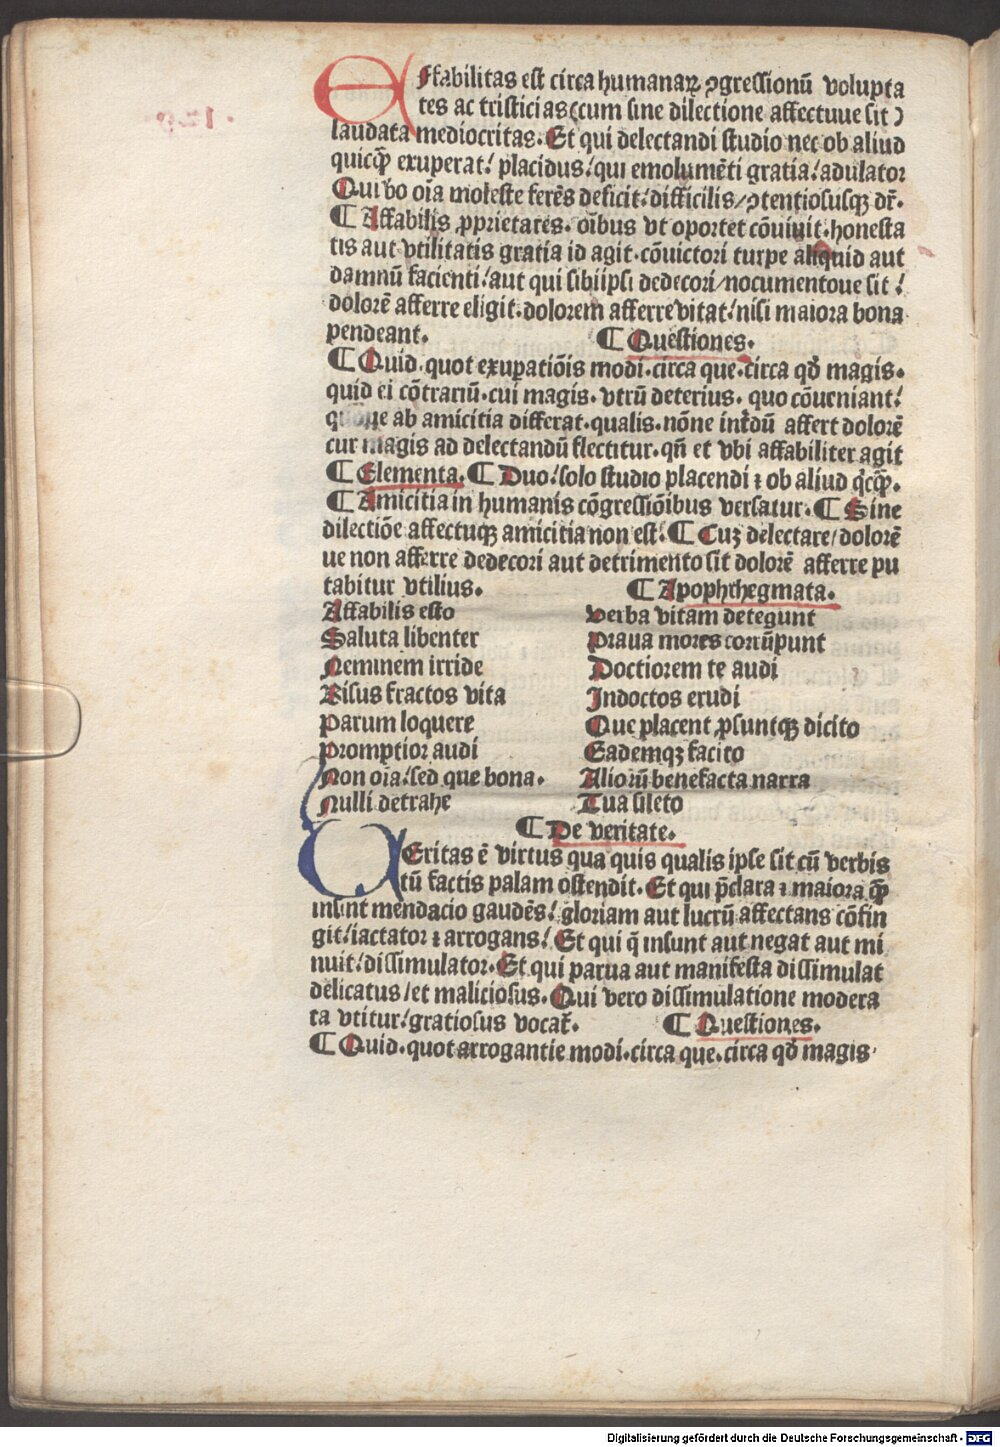 Affabilitas est circa humanaꝝ ꝯgressionū volupta
tes ac tristicias (cum sine dilectione affectuue sit)
laudata mediocritas. Et qui delectandi studio nec ob aliud
quicꝙ̄ exuperat: placidus: qui emolumēti gratia: adulator
Qui vo oīa moleste ferēs deficit: difficilis / ꝯtentiosusqꝫ dr̄.
¶ Affabilis ꝓprietates. oībus vt oportet cōuiuit. honesta
tis aut vtilitatis gratia id agit. cōuictori turpe aliquid aut
damnū facienti: aut qui sibiipsi dedecori / nocumentoue sit:
dolorē afferre eligit. dolorem afferre vitat: nisi maiora bona
pendeant. ¶ Questiones.
¶ Quid. quot exupatiōis modi. circa que. circa qđ magis.
quid ei cōtrariū. cui magis. vtrū deterius. quo cōueniant:
ab amicitia differat. qualis. nōne intđū affert dolorē
cur magis ad delectandū flectitur. qn̄ et vbi affabiliter agit
¶ Elementa. ¶ Duo: solo studio placendi ⁊ ob aliud qͥcꝙ̄.
¶ Amicitia in humanis cōgressiōibus versatur. ¶ Sine
dilectiōe affectuqꝫ amicitia non est. ¶ Cuꝫ delectare / dolorē
ue non afferre dedecori aut detrimento sit dolorē afferre pu
tabitur vtilius. ¶ Apophthegmata.
Affabilis esto
Saluta libenter
Neminem irride
Risus fractos vita
Parum loquere
Promptior audi
Non oīa: sed que bona.
Nulli detrahe
Verba vitam detegunt
Praua mores corrūpunt
Doctiorem te audi
Indoctos erudi
Que placent ꝓsuntqꝫ dicito
Eademqꝫ facito
Aliorū benefacta narra
Tua sileto
¶ De veritate.
VEritas ē virtus qua quis qualis ipse sit cū verbis
tū factis palam ostendit. Et qui p̄clara ⁊ maiora ꝙ̄
insint mendacio gaudēs: gloriam aut lucrū affectans cōfin
git: iactator ⁊ arrogans: Et qui q̄ insunt aut negat aut mi
nuit: dissimulator. Et qui parua aut manifesta dissimulat
delicatus / et maliciosus. Qui vero dissimulatione modera
ta vtitur: gratiosus vocat̄. ¶ Questiones.
¶ Quid. quot arrogantie modi. circa que. circa qđ magis.
Digitalisierung gefördert durch die Deutsche Forschungsgemeinschaft - DFG